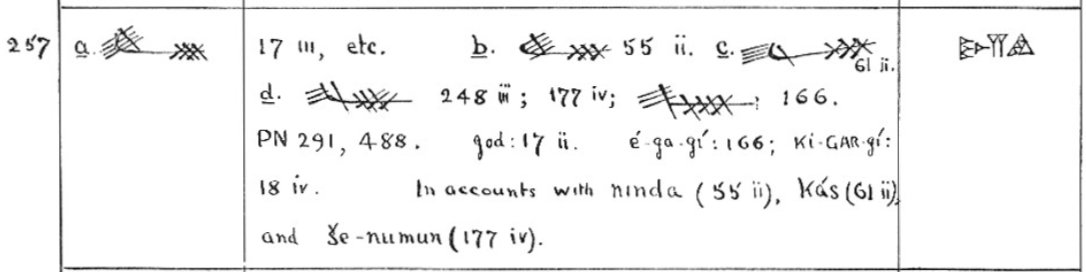 257 a. 17 iii, etc. b. 55 ii. c. 61 ii.
d. 248 iii; 177 iv; : 166.
PN 291, 488. god: 17 ii. é-ga-gí: 166; Ki-GAR-gí:
18 iv. In accounts with ninda (55 ii), Kás (61 ii),
and še-numun (177 iv).